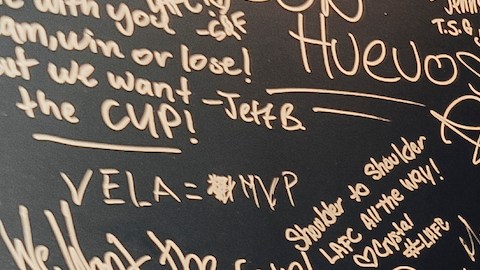 with you
am, win or lose!
but we want
the CUP! -Jeff B.
Huevos
T.S.G
VELA = MVP
Shoulder to Shoulder
LAFC All the WAY!
♡Crystal
#LAFC
We Want the